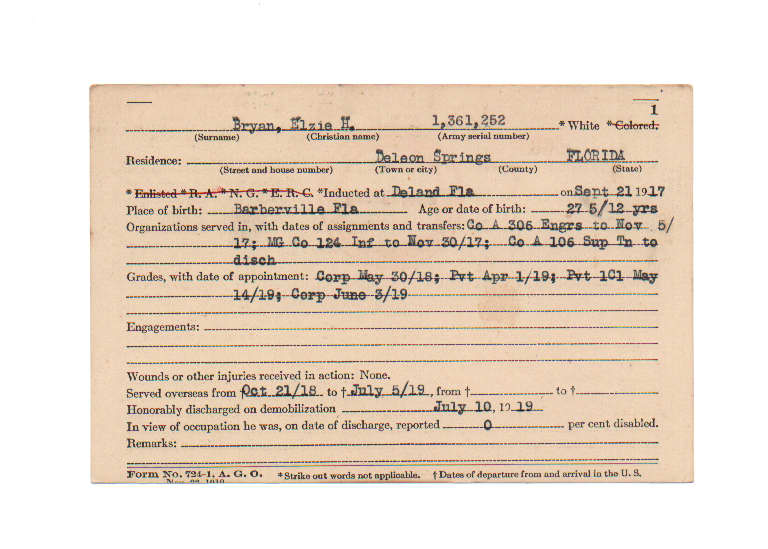 1
Bryan, Elzie H. 1,361,252 * White * Colored.
(Surname) (Christian name) (Army serial number)
Residence: Deleon Springs FLORIDA
(Street and house number) (Town or city) (County) (State)
* Enlisted * R. A. * N. G. * E. R. C. *Inducted at Deland Fla on Sept 21 1917
Place of birth: Barberville Fla Age or date of birth: 27 5/12 yrs
Organizations served in, with dates of assignments and transfers: Co A 306 Engrs to Nov 5/
17; MG Co 124 Inf to Nov 30/17; Co A 106 Sup Tn to
disch
Grades, with date of appointment: Corp May 30/18; Pvt Apr 1/19; Pvt 1Cl May
14/19; Corp June 3/19
Engagements:
Wounds or other injuries received in action: None.
Served overseas from † Oct 21/18 to † July 5/19, from † to †
Honorably discharged on demobilization July 10, 19 19
In view of occupation he was, on date of discharge, reported 0 per cent disabled.
Remarks:
Form No. 724-1, A. G. O. *Strike out words not applicable. † Dates of departure from and arrival in the U. S.